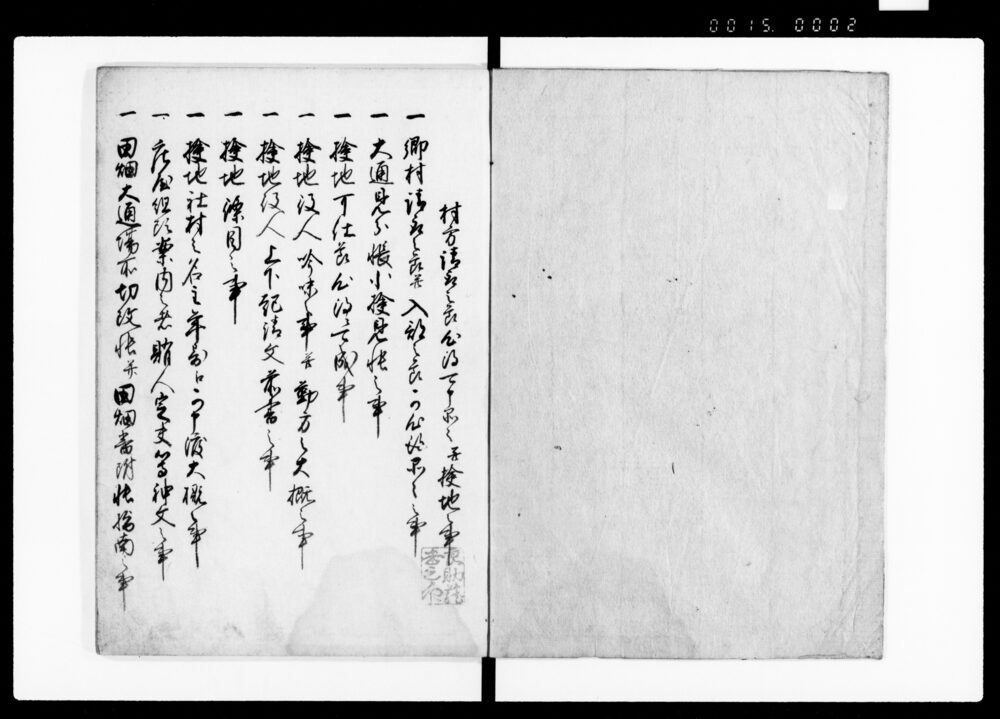 0015. 0002
村方請取之節心得可申品々并検地之事
一 郷村請取之節并入部之節可心得品々之事
一 大通見分帳小検見帳之事
一 検地可仕節心得之成事
一 検地役人吟味之事并勤方之大概之事
一 検地役人上下起請文前書之事
一 検地條目之事
一 検地社村之名主年寄口可申渡大概之事
一 庄屋組頭案内之者賄人定夫等神文之事
一 田畑大通場所切改帳并田畑番附帳指南之事